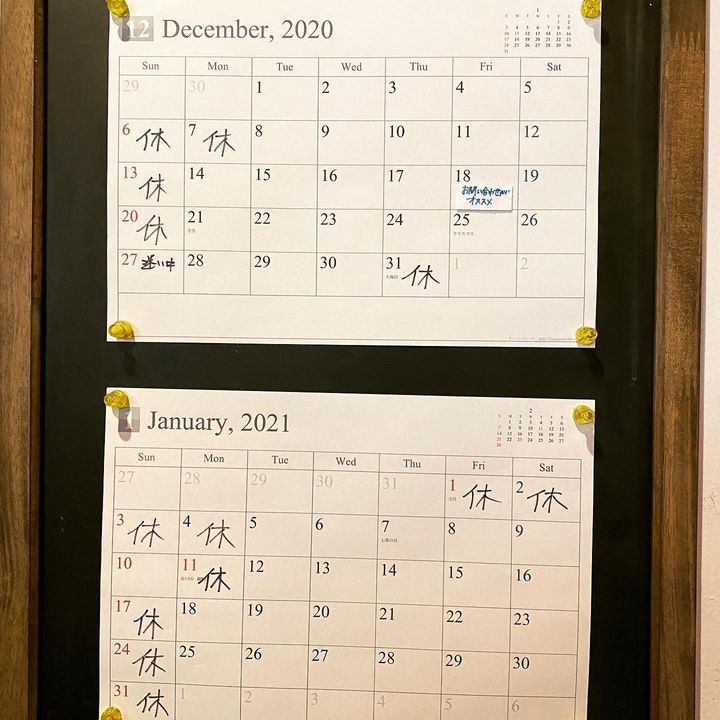 12 December, 2020
1
Sun Mon Tue Wed Thu Fri Sat
29 30 1 2 3 4 5
6 休 7 休 8 9 10 11 12
13 休 14 15 16 17 18 19
お問い合わせ
オススメ
20 休 21 22 23 24 25 26
冬至 クリスマス
27 迷い中 28 29 30 31 休 1 2
大晦日
1 January, 2021
2
Sun Mon Tue Wed Thu Fri Sat
27 28 29 30 31 1 休 2 休
元日
3 休 4 休 5 6 7 8 9
七草の日
10 11 休 12 13 14 15 16
成人の日
17 休 18 19 20 21 22 23
24 休 25 26 27 28 29 30
31 休 1 2 3 4 5 6